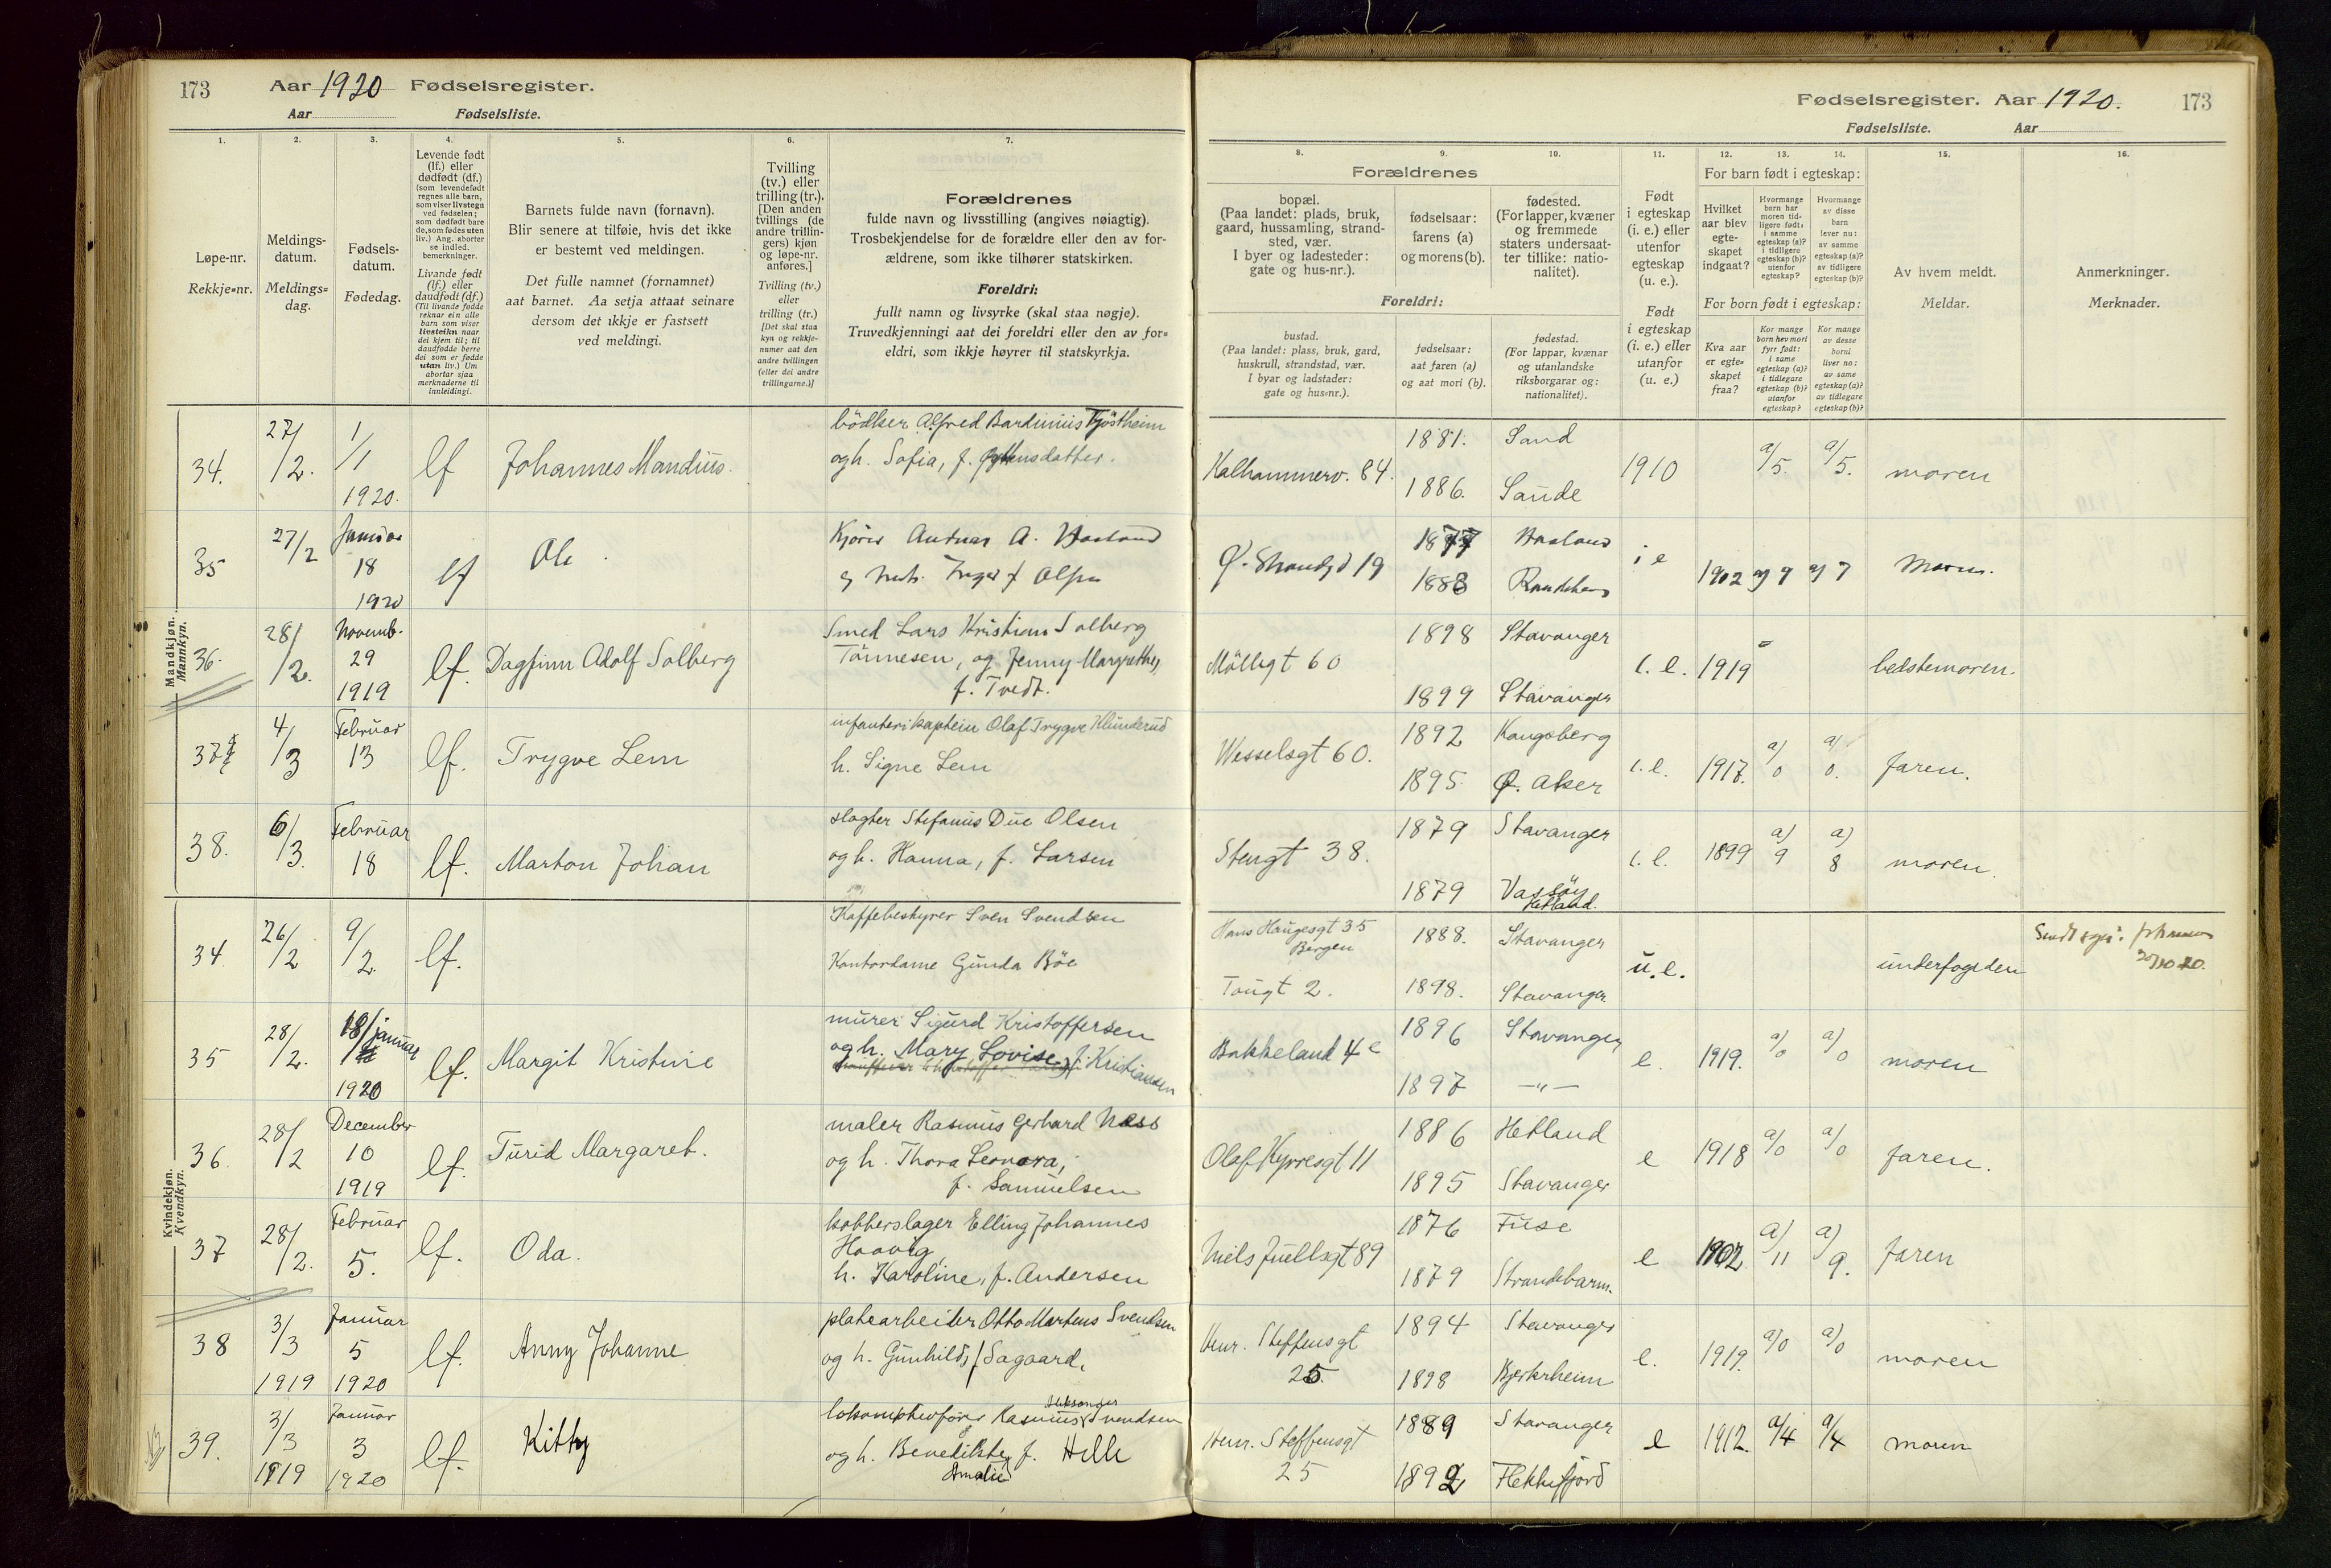 173
Aar 1920 Fødselsregister.
Aar Fødselsliste.
1. 2. 3. 4. 5. 6. 7.
Løpe-nr.
Rekkje=nr.
Meldings-
datum.
Meldings=
dag.
Fødsels-
datum.
Fødedag.
Levende født
(lf.) eller
dødfødt (df.)
(som levendefødt
regnes alle barn,
som viser livstegn
ved fødselen;
som dødfødt bare
de, som fødes uten
liv.) Ang. aborter
se indled.
bemerkninger.
Livande født
(lf.) eller
daudfødt (df.)
(Til livande fødde
reknar ein alle
barn som viser
livsteikn naar
dei kjem til; til
daudfødde berre
dei som er fødde
utan liv.) Um
abortar sjaa
merknaderne til
innleidingi.
Barnets fulde navn (fornavn).
Blir senere at tilføie, hvis det ikke
er bestemt ved meldingen.
Det fulle namnet (fornamnet)
aat barnet. Aa setja attaat seinare
dersom det ikkje er fastsett
ved meldingi.
Tvilling
(tv.) eller
trilling (tr.).
[Den anden
tvillings (de
andre trillin-
gers) kjøn
og løpe-nr.
anføres.]
Tvilling (tv.)
eller
trilling (tr.)
[Det skal staa
kyn og rekkje-
numer aat den
andre tvillingen
(eller dei andre
trillingarne.)]
Forældrenes
fulde navn og livsstilling (angives nøiagtig).
Trosbekjendelse for de forældre eller den av for-
ældrene, som ikke tilhører statskirken.
Foreldri:
fullt namn og livsyrke (skal staa nøgje).
Truvedkjenningi aat dei foreldri eller den av for=
eldri, som ikkje høyrer til statskyrkja.
Mandkjøn.
Mannkyn.
34. 27/2. 1/1 1920. lf Johannes Mandius.
bødker Alfred Bardinius Tjøstheim
og h. Sofia, f.
35 27/2 Januar 18 1920 lf Ole
A. Haaland
36. 28/2. Novemb. 29 1919 lf. Dagfinn Adolf Solberg
Smed Lars Kristian Solberg
Tønnesen, og Jenny Margrethe,
f. Tvedt.
37 4/3 Februar 13 lf. Trygve Lem
infanterikaptein Olaf Trygve Klunderud
h. Signe Lem
38. 6/3. Februar 18 lf. Marton Johan
slagter Stefanus Due Olsen
og h. Hanna, f. Larsen
Kvindekjøn.
Kvendkyn.
34 26/2 9/2. lf.
Kaffebestyrer Sven Svendsen
Kontordame Gunda Bøe
35 28/2. 18/januar 1920 lf. Margit Kristine
murer Sigurd Kristoffersen
og h. Mary Lovise, f. Kristiansen
36. 28/2 December 10 1919 lf. Turid Margaret.
maler Rasmus Gerhard Næss
og h. Thora Leonora,
f. Samuelsen
37 28/2. Februar 5. lf. Oda.
kobberslager Elling Johannes
Haavig,
h. Karoline, f. Andersen
38 3/3 1919 Januar 5 1920 lf. Anny Johanne
platearbeider Otto Martens Svendsen
og h. Gunhild, f. Sagaard,
39. 3/3 1919 Januar 3 1920 lf. Kitty
lokomotivfører Rasmus Svendsen
og h. Benedikte, f. Helle
Amalie
Fødselsregister. Aar 1920. 173
Fødselsliste. Aar
8. 9. 10. 11. 12. 13. 14. 15. 16.
Forældrenes
bopæl.
(Paa landet: plads, bruk,
gaard, hussamling, strand-
sted, vær.
I byer og ladesteder:
gate og hus-nr.).
fødselsaar:
farens (a)
og morens (b).
fødested.
(For lapper, kvæner
og fremmede
staters undersaat-
ter tillike: natio-
nalitet).
Foreldri:
bustad.
(Paa landet: plass, bruk, gard,
huskrull, strandstad, vær.
I byar og ladstader:
gate og hus=nr.).
fødselsaar:
aat faren (a)
og aat mori (b).
fødestad.
(For lappar, kvænar
og utanlandske
riksborgarar og:
nationalitet).
Født
i egteskap
(i. e.) eller
utenfor
egteskap
(u. e.).
Født
i egteskap
(i. e.) eller
utanfor
(u. e.)
For barn født i egteskap:
Hvilket
aar blev
egte-
skapet
indgaat?
Hvormange
barn har
moren tid-
ligere født:
i samme
egteskap (a)?
i tidligere
egteskap (b)?
utenfor
egteskap?
Hvormange
av disse
barn
lever nu:
av samme
egteskap (a)?
av tidligere
egteskap (b)?
For born født i egteskap:
Kva aar
er egte=
skapet
fraa?
Kor mange
born hev mori
fyrr født:
i same
egteskap (a)?
i tidlegare
egteskap (b)?
utanfor
egteskap?
Kor mange
av desse
borni
liver no:
av same
egteskap (a)?
av tidlegare
egteskap (b)?
Av hvem meldt.
Meldar.
Anmerkninger.
Merknader.
Kalhammerv. 84. 1881. Sand
1886. Saude 1910 a/5. a/5. moren
Ø. Strandgd 19 1877 Haaland
1883 i e 1902 a) 9 a) 7 Moren.
Møllegt 60 1898 Stavanger
1899 Stavanger i. e. 1919 bedstemoren.
Wesselsgt 60. 1892 Kongsberg
1895 Ø. Aker i. e. 1917. a/0 a/0. faren.
Stengt 38. 1879 Stavanger
1879 Vassøy Hetland. i. e. 1899 a) 9 a) 8 moren.
Hans Haugesgt 35
Bergen 1888. Stavanger
Tougt 2. 1898. Stavanger u. e. underfogden
Bakkeland 4 e 1896 Stavanger
1897 —"— e. 1919. a/0 a/0 moren
Olaf Kyrresgt 11 1886 Hetland
1895 Stavanger e 1918 a/0 a/0 faren.
Niels Juellsgt 89 1876 Fuse
1879 Strandebarm. e 1902 a) 11 a) 9. faren
Henr. Steffensgt
25. 1894 Stavanger
1898 Bjerkrheim e. 1919. a/0 a/0 moren
Henr. Steffensgt
25 1889 Stavanger
1892 Flekkefjord e 1912. a/4 a/4 moren